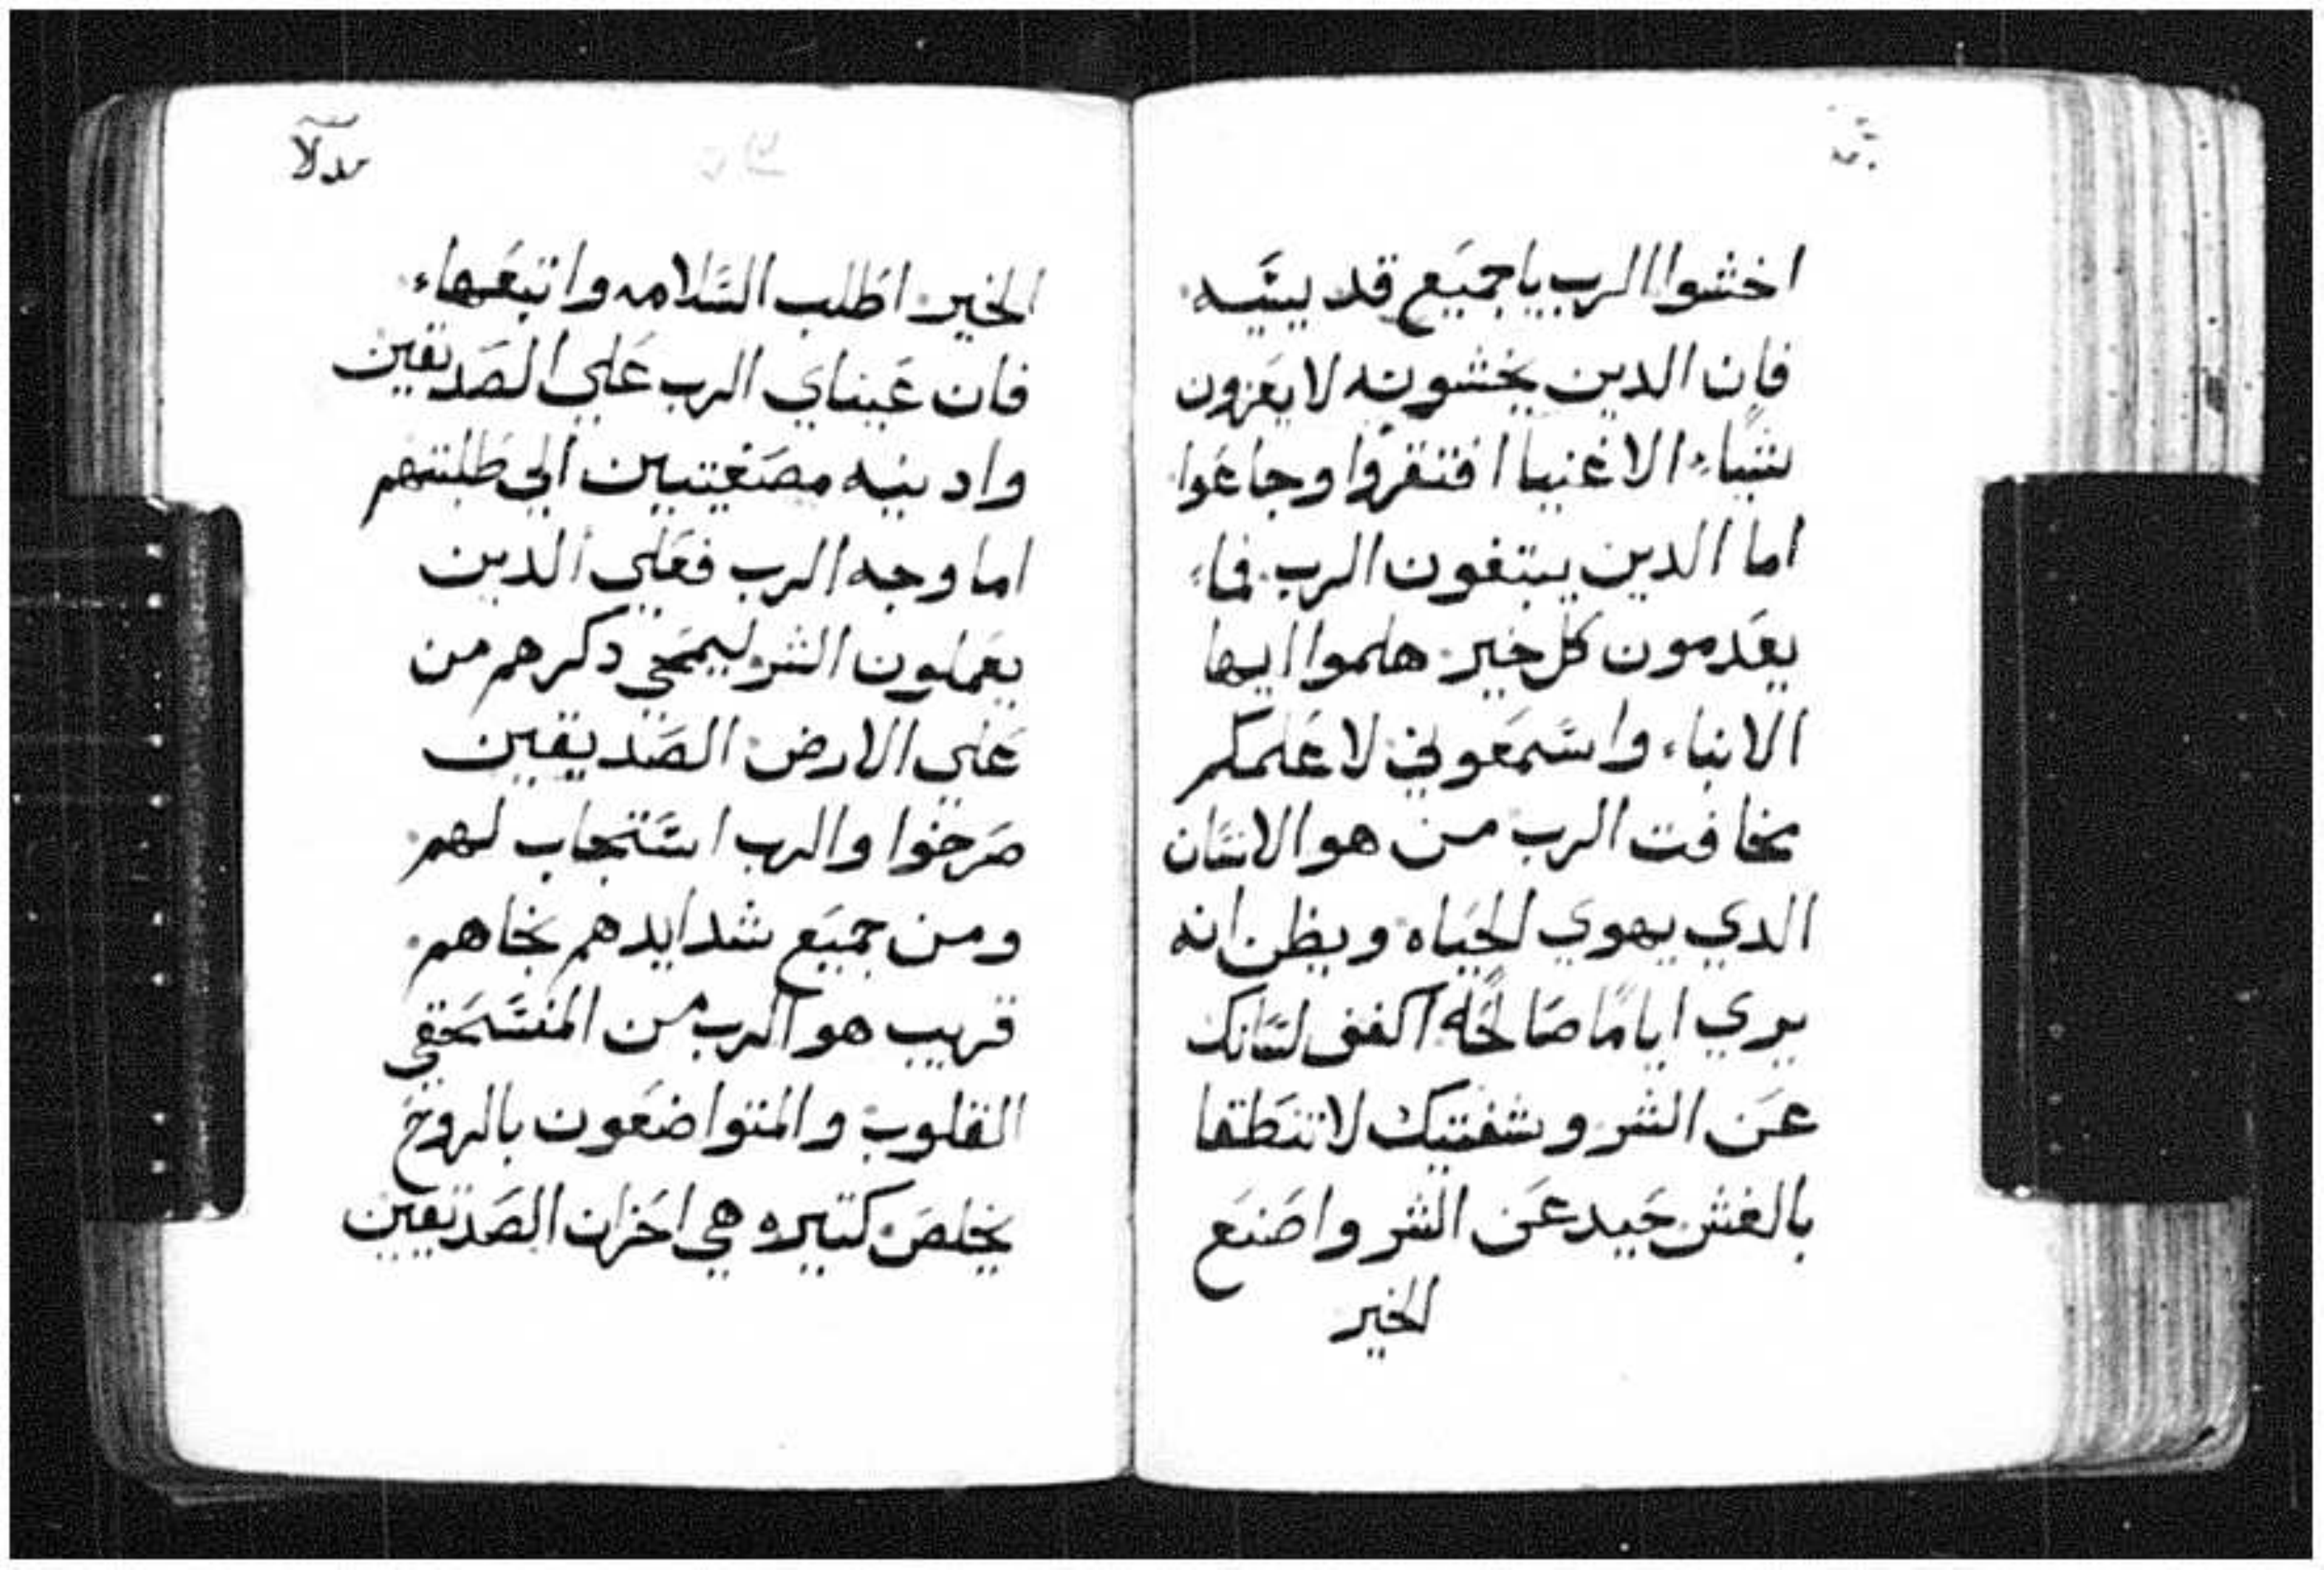 اخشوا الرب يا جميع قديسيه
فان الدين يخشونه لا يعزون
شياء الاغنيا افتقروا وجاعوا
اما الدين يبتغون الرب فماء
يعدمون كل خير هلموا ايها
الابناء واسمعوني لاعلمكم
مخافت الرب من هو الانسان
الدي يهوي الحياه ويظن انه
يري اياما صالحه اكفف لسانك
عن الشر وشفتيك لا تنطقا
بالغش حيد عن الشر واصنع
الخير
الخير اطلب السلامه واتبعهاء
فان عيناي الرب علي الصديقين
وادنيه مصغيتين الي طلبتهم
اما وجه الرب فعلي الدين
يعملون الشر ليمحي دكرهم من
علي الارض الصديقين
صرخوا والرب استجاب لهم
ومن جميع شدايدهم نجاهم
قريب هو الرب من المنسحقي
القلوب والمتواضعون بالروح
يخلص كتيره هي احزان الصديقين